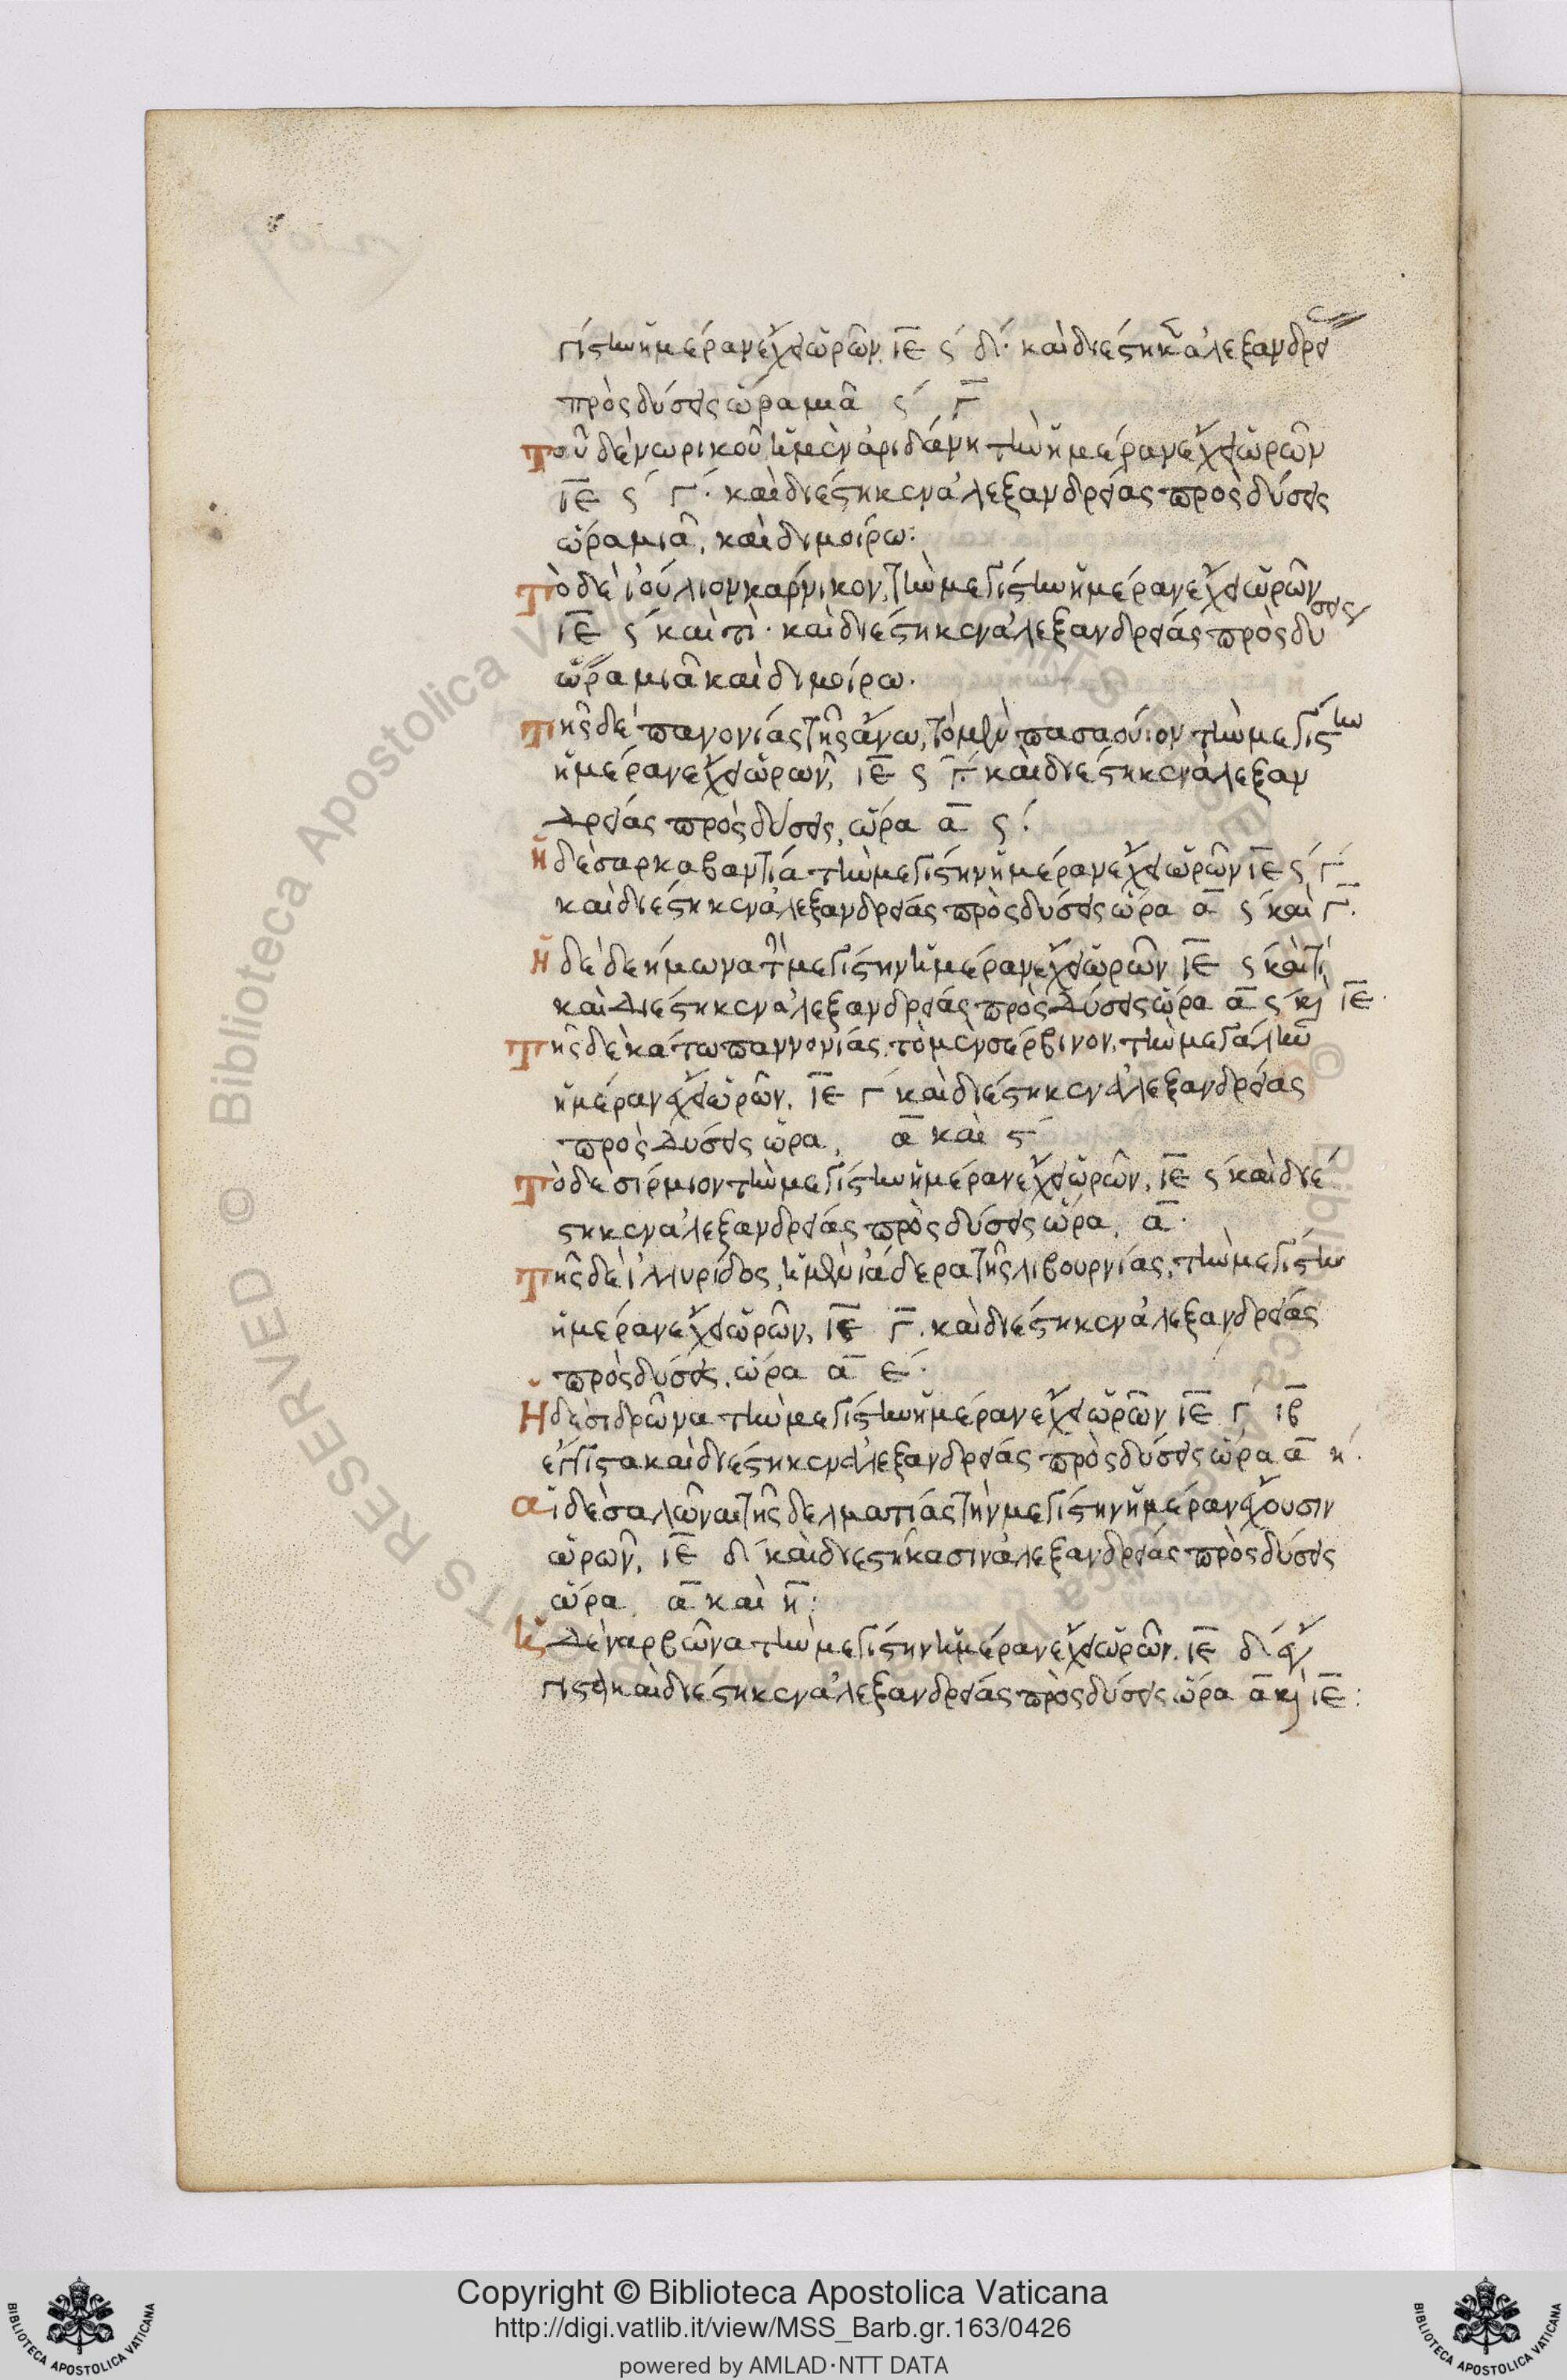 γίστην ἡμέραν ἔχει ὡρῶν ιε ς´ δ´· καὶ διέστηκεν ἀλεξανδρείας
πρὸς δύσεις ὥρα μιᾷ ς´ γ
Τοῦ δὲ νωρικοῦ ἡ μὲν ἀριδάνη τὴν ἡμέραν ἔχει ὡρῶν
ιε ς´ γ´· καὶ διέστηκεν ἀλεξανδρείας πρὸς δύσεις
ὥρα μιᾷ, καὶ διμοίρω:
Τὸ δὲ ἰούλιον καρνικον, τὴν μεγίστην ἡμέραν ἔχει ὡρῶν
ιε ς´ καὶ πι· καὶ διέστηκεν ἀλεξανδρείας πρὸς δύσεις
ὥρα μιᾷ καὶ διμοίρω.
Τῆς δὲ πανονίας τῆς ἄνω, τὸ μὲν πασαούιον τὴν μεγίστην
ἡμέραν ἔχει ὡρῶν, ιε ς γ´ καὶ διέστηκεν ἀλεξαν
δρείας πρὸς δύσεις, ὥρα α ς´:
ἡ δὲ σαρκαβαντία τὴν μεγίστην ἡμέραν ἔχει ὡρῶν ιε ς´ γ´
καὶ διέστηκεν ἀλεξανδρείας πρὸς δύσεις ὥρα α ς´ καὶ γ.
ἡ δὲ δεήμωνα τὴν μεγίστην ἡμέραν ἔχει ὡρῶν ιε ς καὶ γι
καὶ διέστηκεν ἀλεξανδρείας πρὸς δύσεις ὥρα α ς´ κὶ ιε·
Τῆς δὲ κάτω παννονίας, τὸ μὲν σέρβινον, τὴν μεγάλην
ἡμέραν ἔχει ὡρῶν, ιε γ´ καὶ διέστηκεν ἀλεξανδρείας
πρὸς δύσεις ὥρα, α καὶ ς´
Τὸ δὲ σίρμιον τὴν μεγίστην ἡμέραν ἔχει ὡρῶν, ιε ς´ καὶ διέ
στηκεν ἀλεξανδρείας πρὸς δύσεις ὥρα, α·
Τῆς δὲ ἰλλυρίδος, ἡ μὲν ἰάδερα τῆς λιβουρνίας, τὴν μεγίστην
ἡμέραν ἔχει ὡρῶν, ιε γ. καὶ διέστηκεν ἀλεξανδρείας
πρὸς δύσεις, ὥρα α ε´:
Ἡ δὲ σιδρῶνα τὴν μεγίστην ἡμέραν ἔχει ὡρῶν ιε γ´ ιβ
ἔγγιστα καὶ διέστηκεν ἀλεξανδρείας πρὸς δύσεις ὥρα α η´.
αἱ δὲ σαλῶναι τῆς δελματίας τὴν μεγίστην ἡμέραν ἔχουσιν
ὡρῶν, ιε δ´ καὶ διεστήκασιν ἀλεξανδρείας πρὸς δύσεις
ὥρα, α καὶ η:
ἡ δὲ ναρβῶνα τὴν μεγίστην ἡμέραν ἔχει ὡρῶν, ιε δ´ ἔγ
γιστα καὶ διέστηκεν ἀλεξανδρείας πρὸς δύσεις ὥρα α κὶ ιε:
© Biblioteca Apostolica Vaticana
Copyright © Biblioteca Apostolica Vaticana
http://digi.vatlib.it/view/MSS_Barb.gr.163/0426
powered by AMLAD·NTT DATA